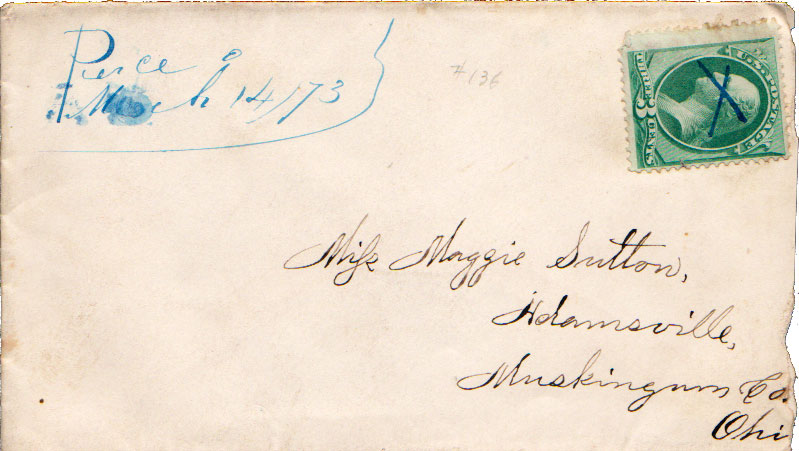 Pierce O
March 14/73
#136
U.S. POSTAGE
THREE 3 CENTS
Miss Maggie Sutton,
Adamsville,
Muskingum Co.
Ohi